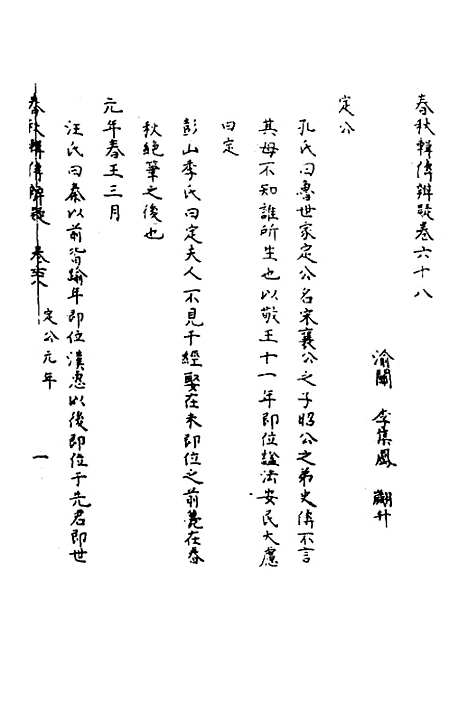 春秋輯傳辨疑卷六十八
渝關 李集鳳 翽升
定公
孔氏曰魯世家定公名宋襄公之子昭公之弟史傳不言
其母不知誰所生也以敬王十一年即位諡法安民大慮
曰定
彭山季氏曰定夫人不見于經娶在未即位之前薨在春
秋絕筆之後也
元年春王三月
汪氏曰秦以前皆踰年即位漢惠以後即位于先君即世
春秋輯傳辨疑 卷六十八 定公元年 一